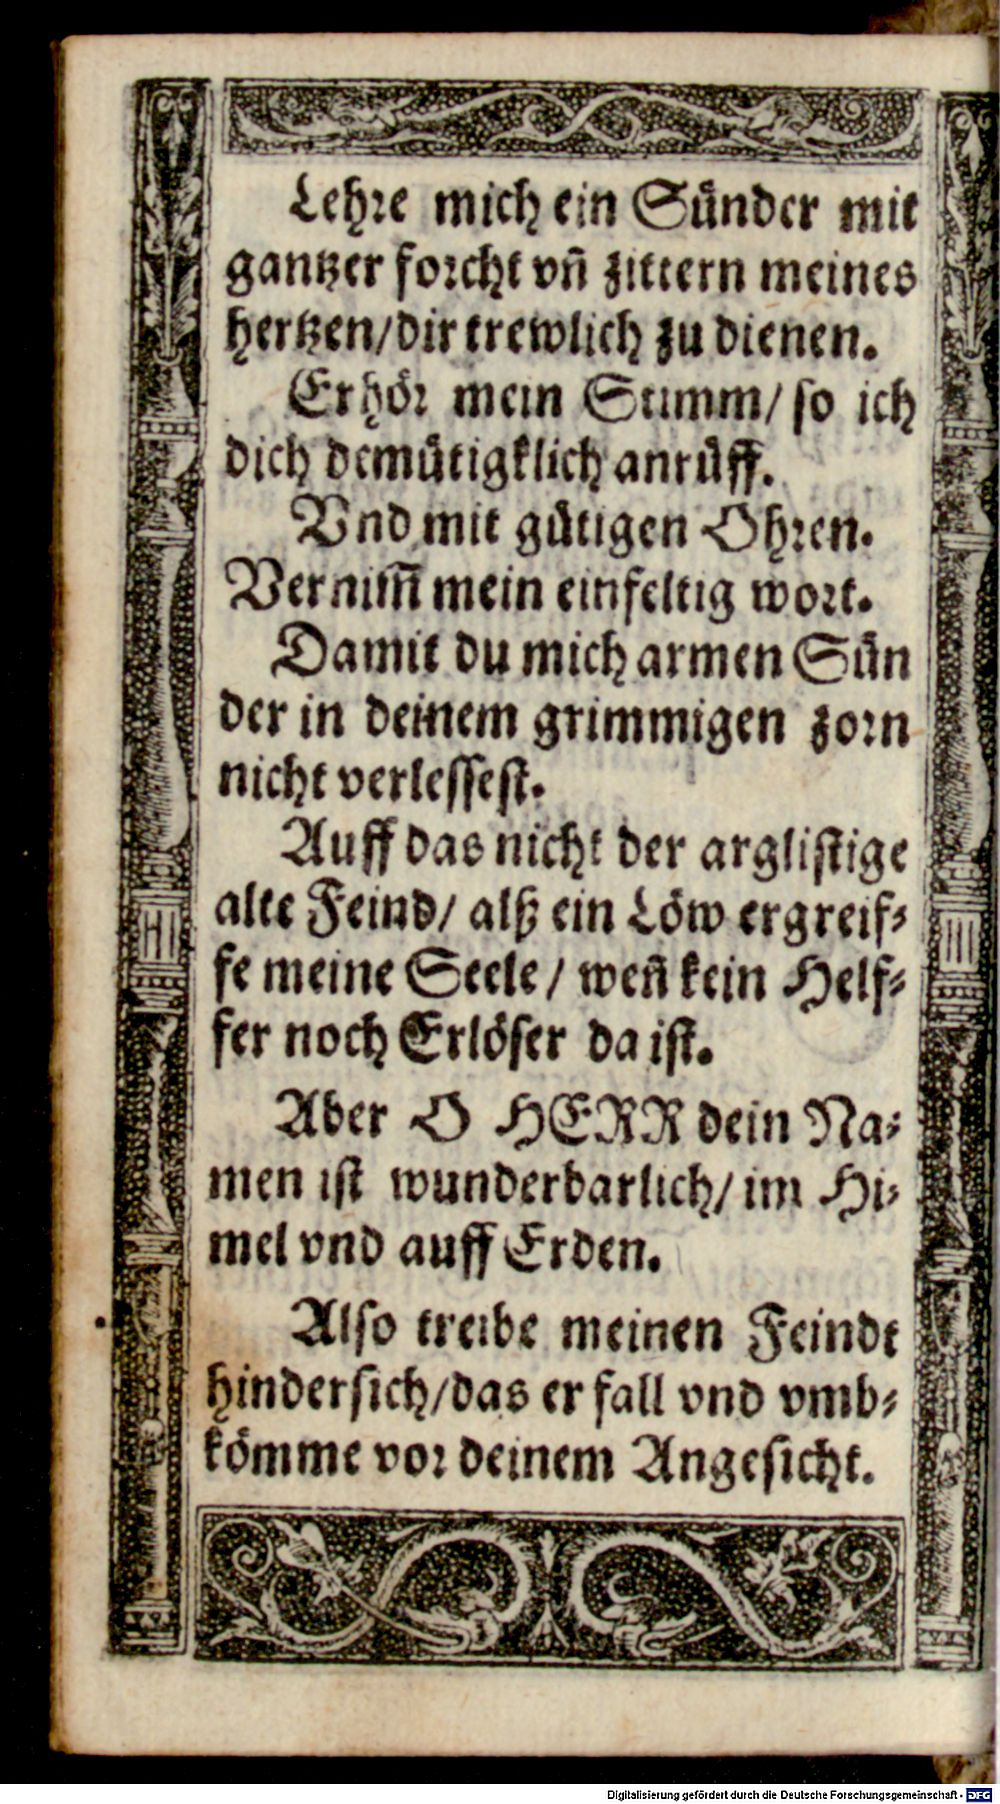 Lehre mich ein Sünder mit
gantzer forcht vñ zittern meines
hertzen/dir trewlich zu dienen.
Erhör mein Stimm/ so ich
dich demütigklich anrüff.
Vnd mit gütigen Ohren.
Vernim̃ mein einfeltig wort.
Damit du mich armen Sün
der in deinem grimmigen zorn
nicht verlessest.
Auff das nicht der arglistige
alte Feind/ alß ein Löw ergreif-
fe meine Seele / weñ kein Helf-
fer noch Erlöser da ist.
Aber O HERR dein Na-
men ist wunderbarlich/ im Hi-
mel vnd auff Erden.
Also treibe meinen Feindt
hindersich/das er fall vnd vmb-
kömme vor deinem Angesicht.
Digitalisierung gefördert durch die Deutsche Forschungsgemeinschaft - DFG